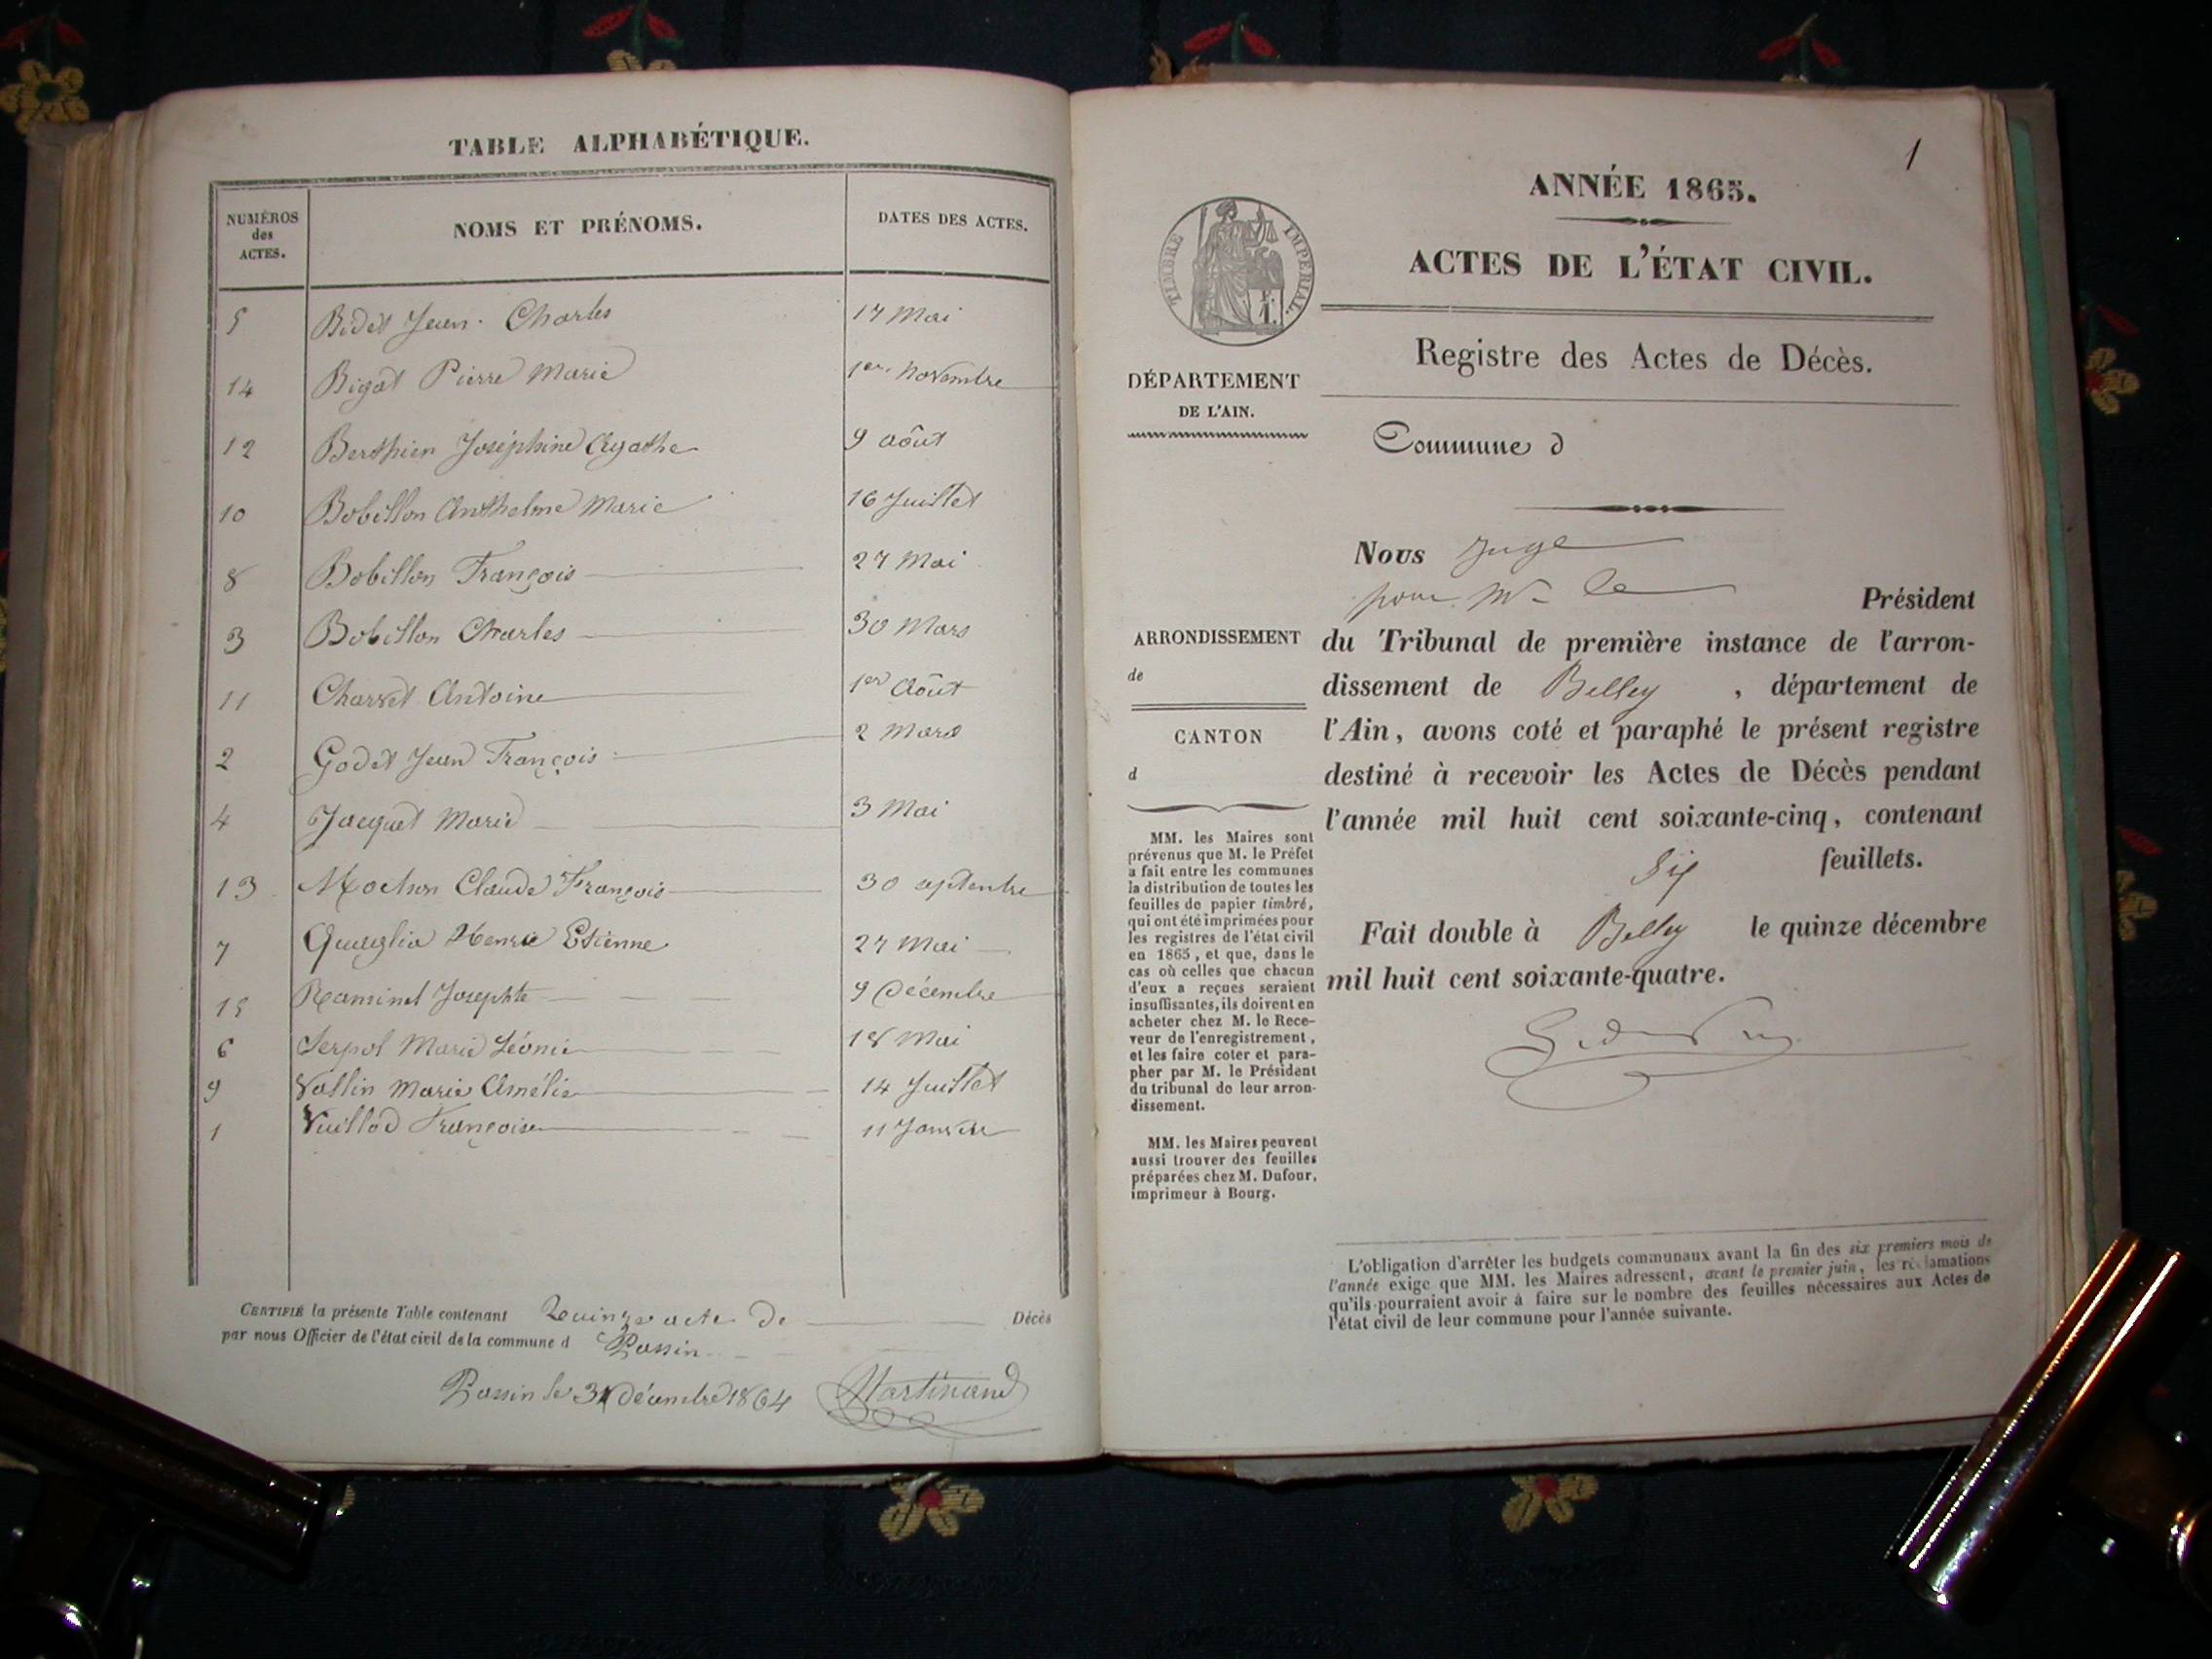 TABLE ALPHABÉTIQUE.
NUMÉROS des ACTES.
NOMS ET PRÉNOMS.
DATES DES ACTES.
5 Bidet Jean-Charles 17 Mai
14 Bigot Pierre Marie 1er Novembre
12 Berthier Joséphine Agathe 9 août
10 Bobillon Anthelme Marie 16 Juillet
8 Bobillon François 27 Mai
3 Bobillon Charles 30 Mars
11 Charvet Antoine 1er Août
2 Godet Jean François 2 Mars
4 Jacquet Marie 3 Mai
13 Mochon Claude François 30 septembre
7 Henrie Etienne 27 Mai
15 Raminet Josephte 9 Décembre
6 Serpol Marie Léonie 18 Mai
9 Vallin Marie Amélie 14 Juillet
1 Vuillod Françoise 11 Janvier
CERTIFIÉ la présente Table contenant Quinze acte de Décès
par nous Officier de l'état civil de la commune d Passin
Passin le 31 décembre 1864 Martinand
1
ANNÉE 1865.
ACTES DE L'ÉTAT CIVIL.
TIMBRE IMPÉRIAL.
Registre des Actes de Décès.
DÉPARTEMENT
DE L'AIN.
Commune d
Nous Juge
pour Mr le Président
ARRONDISSEMENT
de
CANTON
d
du Tribunal de première instance de l'arron-
dissement de Belley, département de
l'Ain, avons coté et paraphé le présent registre
destiné à recevoir les Actes de Décès pendant
l'année mil huit cent soixante-cinq, contenant
six feuillets.
Fait double à Belley le quinze décembre
mil huit cent soixante-quatre.
MM. les Maires sont
prévenus que M. le Préfet
a fait entre les communes
la distribution de toutes les
feuilles de papier timbré,
qui ont été imprimées pour
les registres de l'état civil
en 1865, et que, dans le
cas où celles que chacun
d'eux a reçues seraient
insuffisantes, ils doivent en
acheter chez M. le Rece-
veur de l'enregistrement,
et les faire coter et para-
pher par M. le Président
du tribunal de leur arron-
dissement.
MM. les Maires peuvent
aussi trouver des feuilles
préparées chez M. Dufour,
imprimeur à Bourg.
L'obligation d'arrêter les budgets communaux avant la fin des six premiers mois de
l'année exige que MM. les Maires adressent, avant le premier juin, les réclamations
qu'ils pourraient avoir à faire sur le nombre des feuilles nécessaires aux Actes de
l'état civil de leur commune pour l'année suivante.